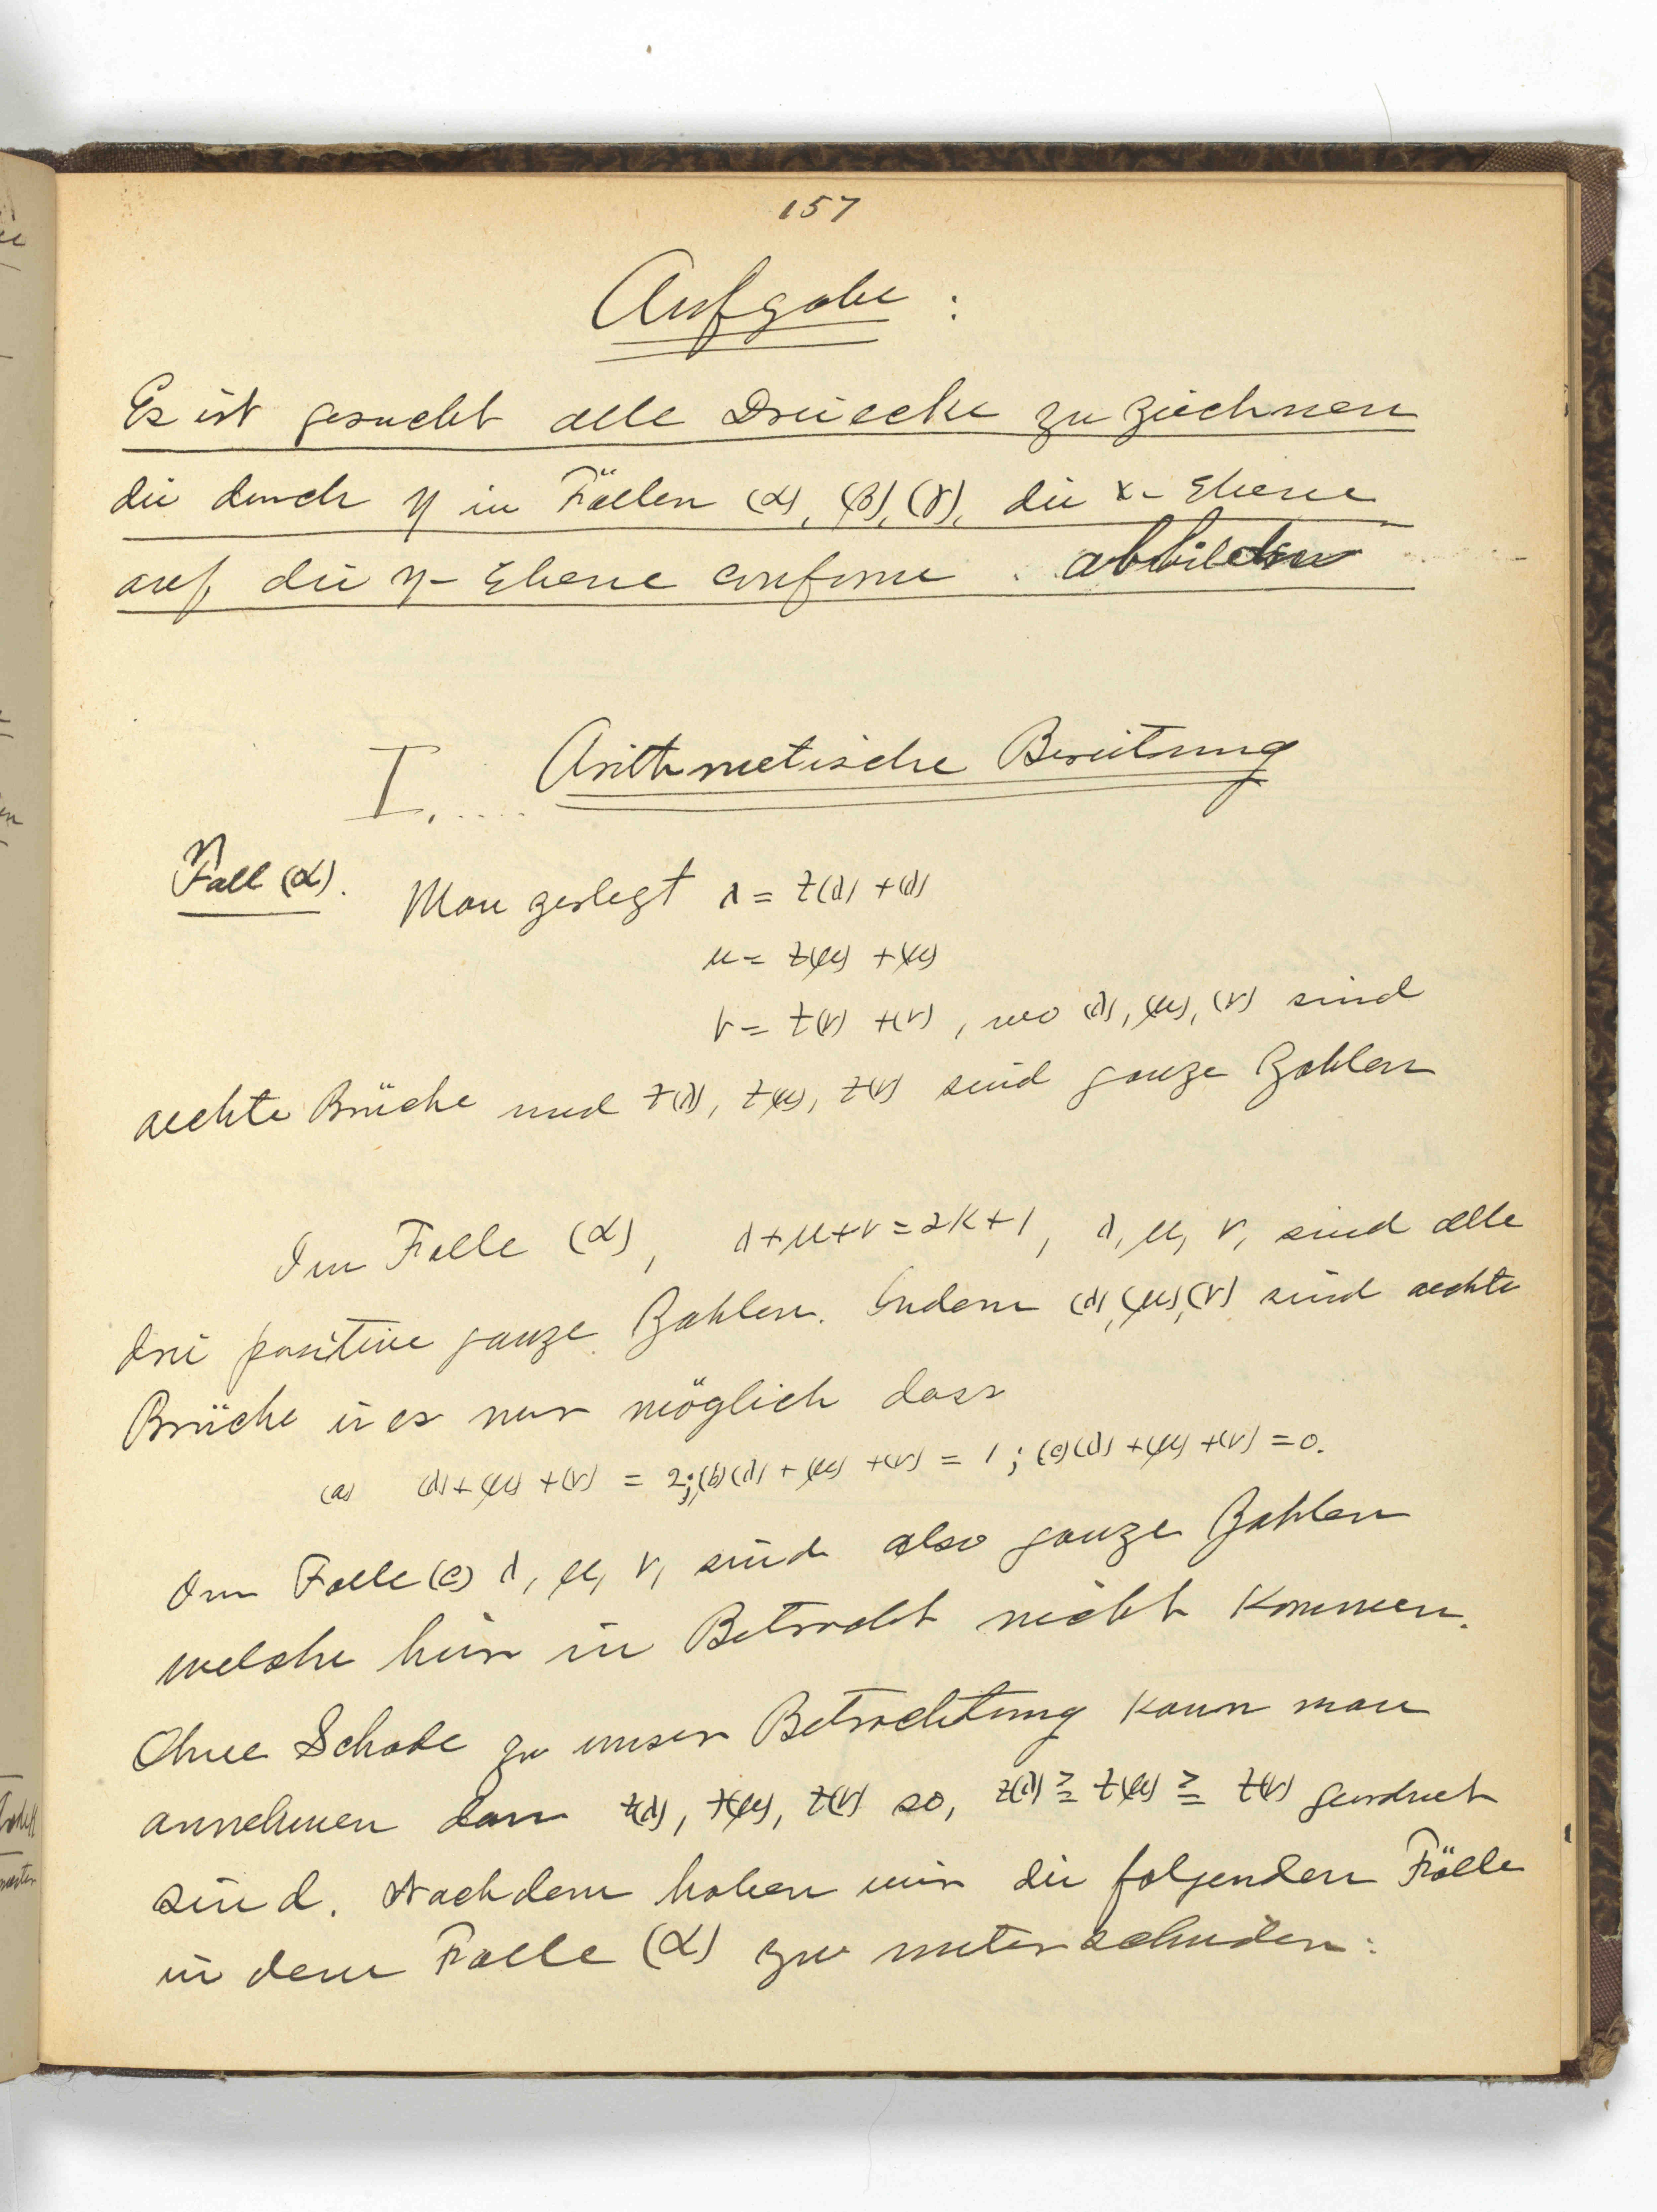 157
Aufgabe :
Es ist gesucht alle Dreiecke zu zeichnen
die durch η in Fällen (α), (β), (γ), die x-Ebene
auf die η-Ebene conforme abbilden
I. .... Arithmetische Bereitung
Fall (α). Man zerlegt λ = z(λ) + (λ)
μ = z(μ) + (μ)
ν = z(ν) + (ν), wo (λ), (μ), (ν) sind
aechte Brüche und z(λ), z(μ), z(ν) sind ganze Zahlen
Im Falle (α), λ+μ+ν = 2k+1, λ, μ, ν, sind alle
drei positive ganze Zahlen. Indem (λ), (μ), (ν) sind aechte
Brüche is es nur möglich dass
(a) (λ)+(μ)+(ν) = 2; (b) (λ)+(μ)+(ν) = 1; (c) (λ)+(μ)+(ν) = 0.
Im Falle (c) λ, μ, ν, sind also ganze Zahlen
welche hier in Betracht nicht kommen.
Ohne Schade zu unser Betrachtung kann man
annehmen dass z(λ), z(μ), z(ν) so, z(λ) ≧ z(μ) ≧ z(ν) geordnet
sind. Nachdem haben wir die folgenden Fälle
in dem Falle (α) zu unterscheiden: